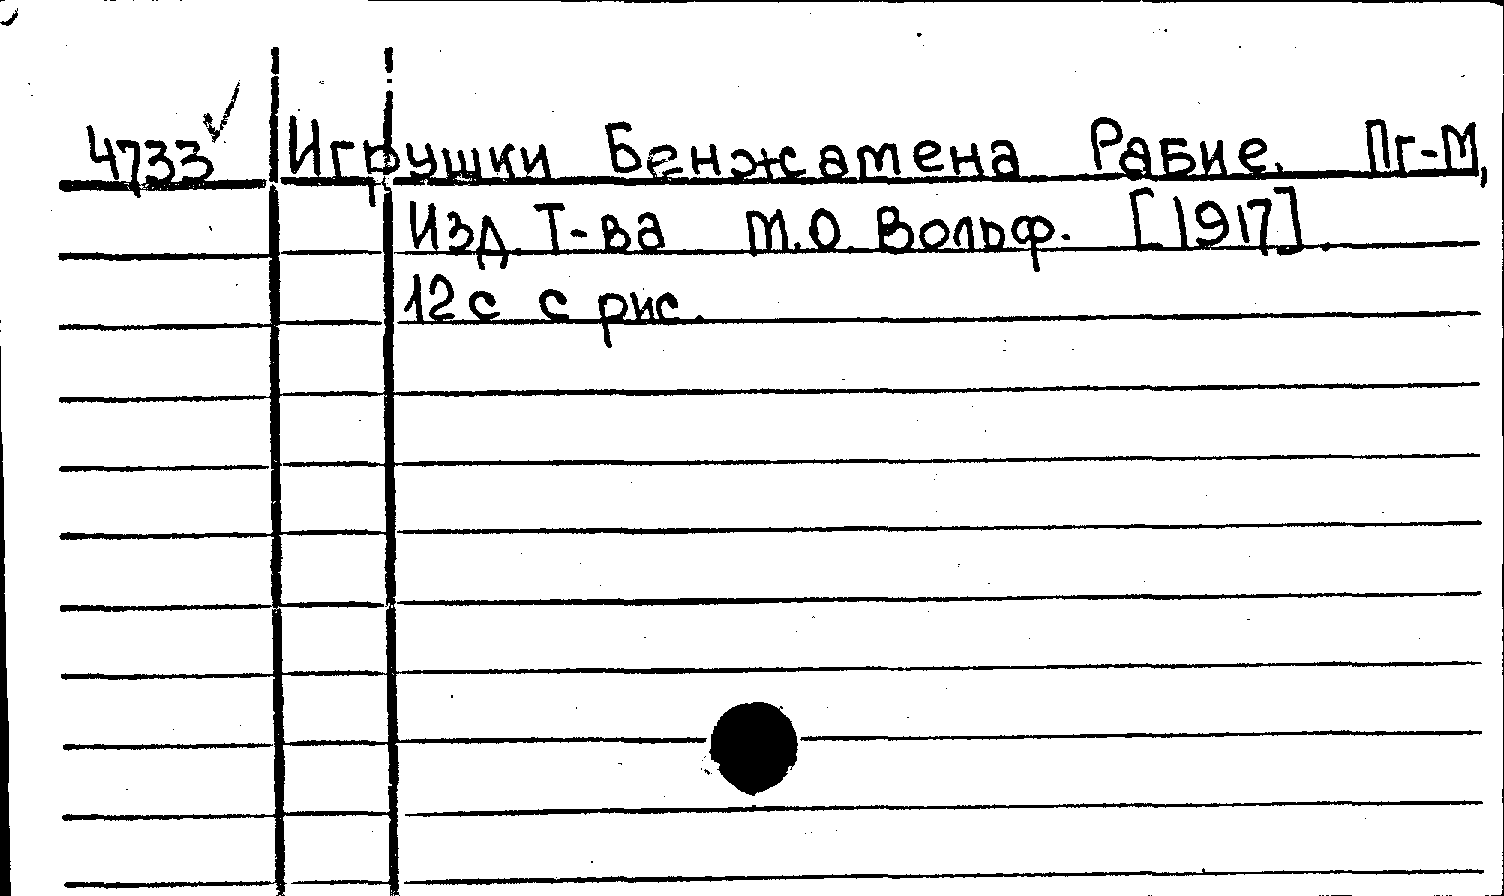 4733 Игрушки Бенжамена Рабие. Пг-М,
Изд. Т-ва М.О. Вольф. [1917].
12с с рис.